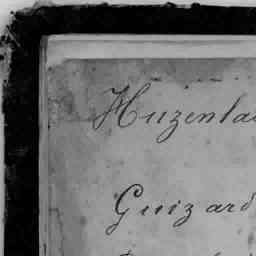 Huzenla
Guizard